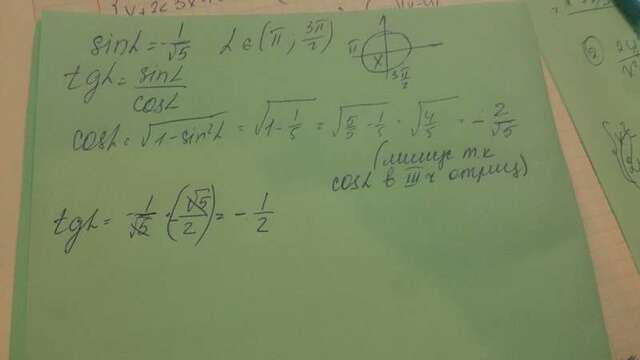 sinα = -1/√5 α ∈ (π ; 3π/2) π 3π/2
tgα = sinα/cosα
cosα = √(1-sin²α) = √(1-1/5) = √(5/5-1/5) = √(4/5) = -2/√5
(минус т.к
cosα в III ч отриц)
tgα = -1/√5 · (-√5/2) = -1/2
② 24